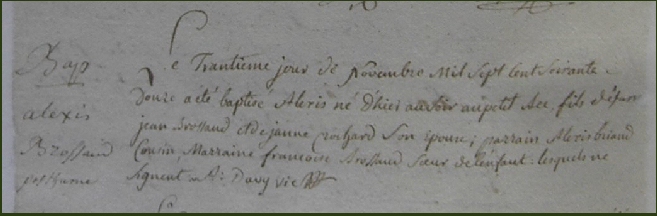 Bap
alexis
Brossaud
posthume
Le Trantieme jour de Novembre Mil Sept Cent Soixante
Douze a été baptisé Alexis né d'hier au soir au petit fils de feu
jean Brossaud et de jeanne Rochard Son epouse; parrain Alexis briand
Cousin, Marraine francoise brossaud Sœur de l'enfant: lesquels ne
Signent Davy vic